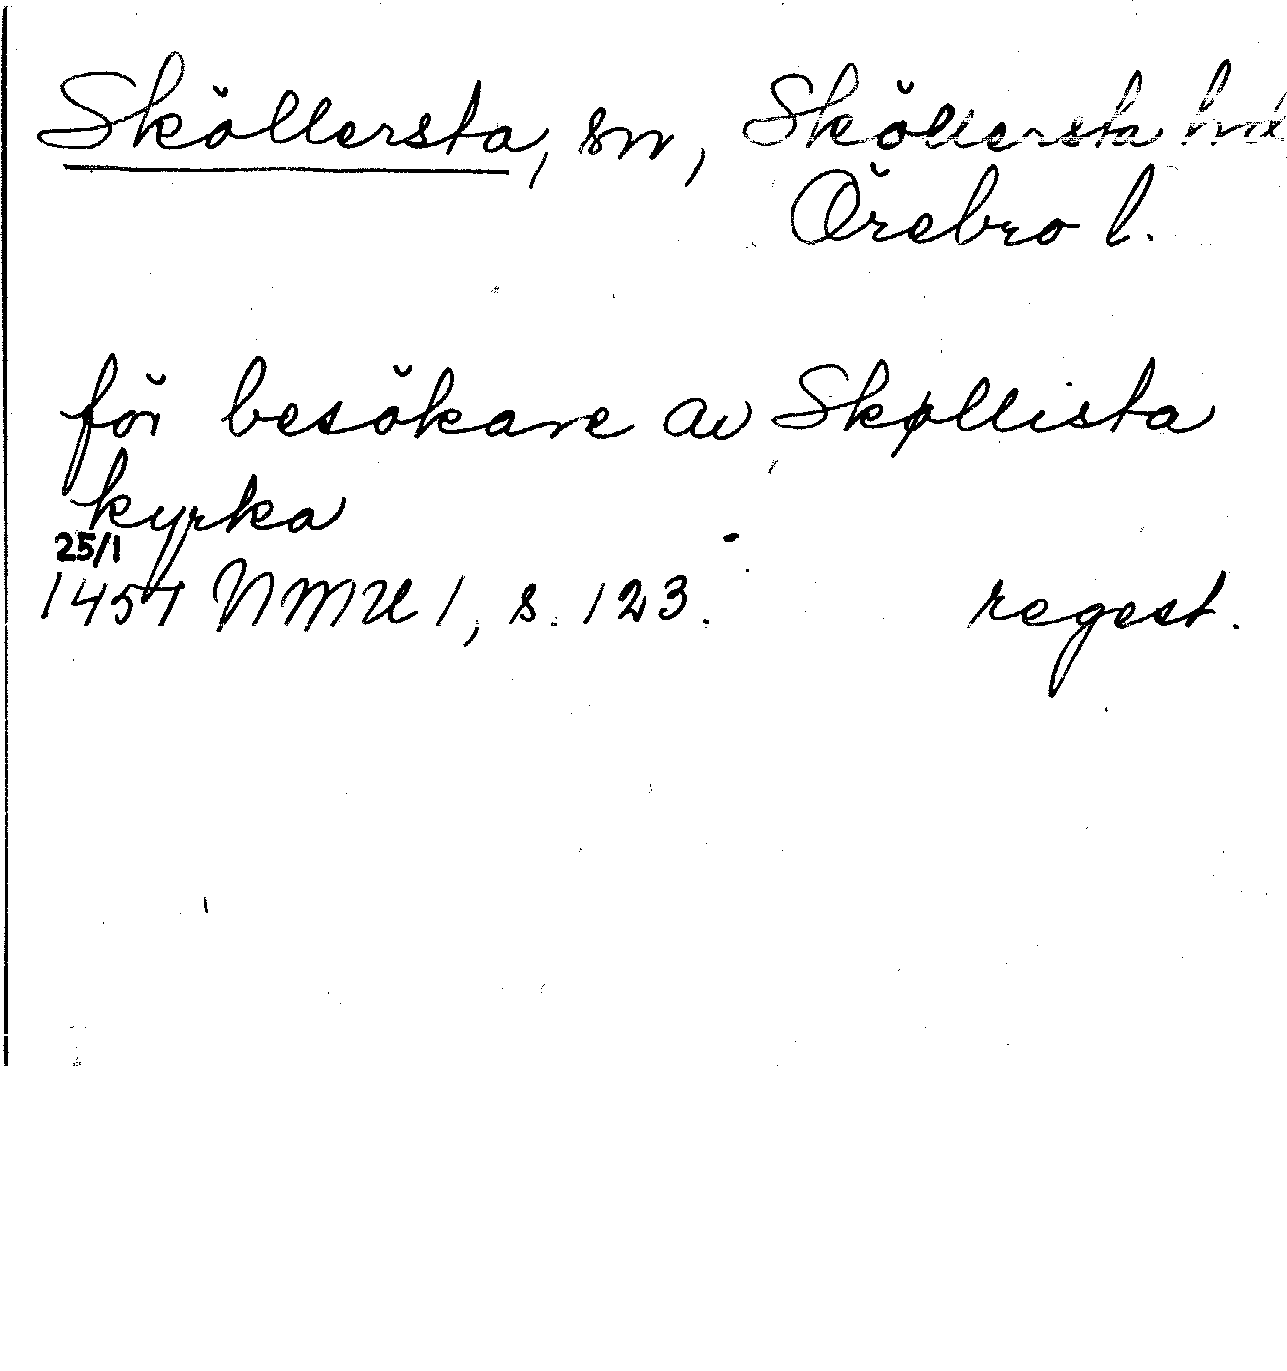 Sköllersta, sn, Sköllersta hd
Örebro l.
för besökare av Skøllista
kyrka
25/1
1454 NMU 1, s. 123. regest.